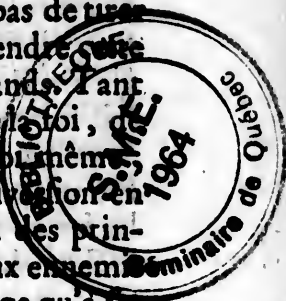 pas de tirer
endre cette
ands. Tant
la foi,
même,
en
des prin-
ux ennemis
ce qu'
BIBLIOTHÈQUE
S. M. E.
1964
Séminaire de Québec